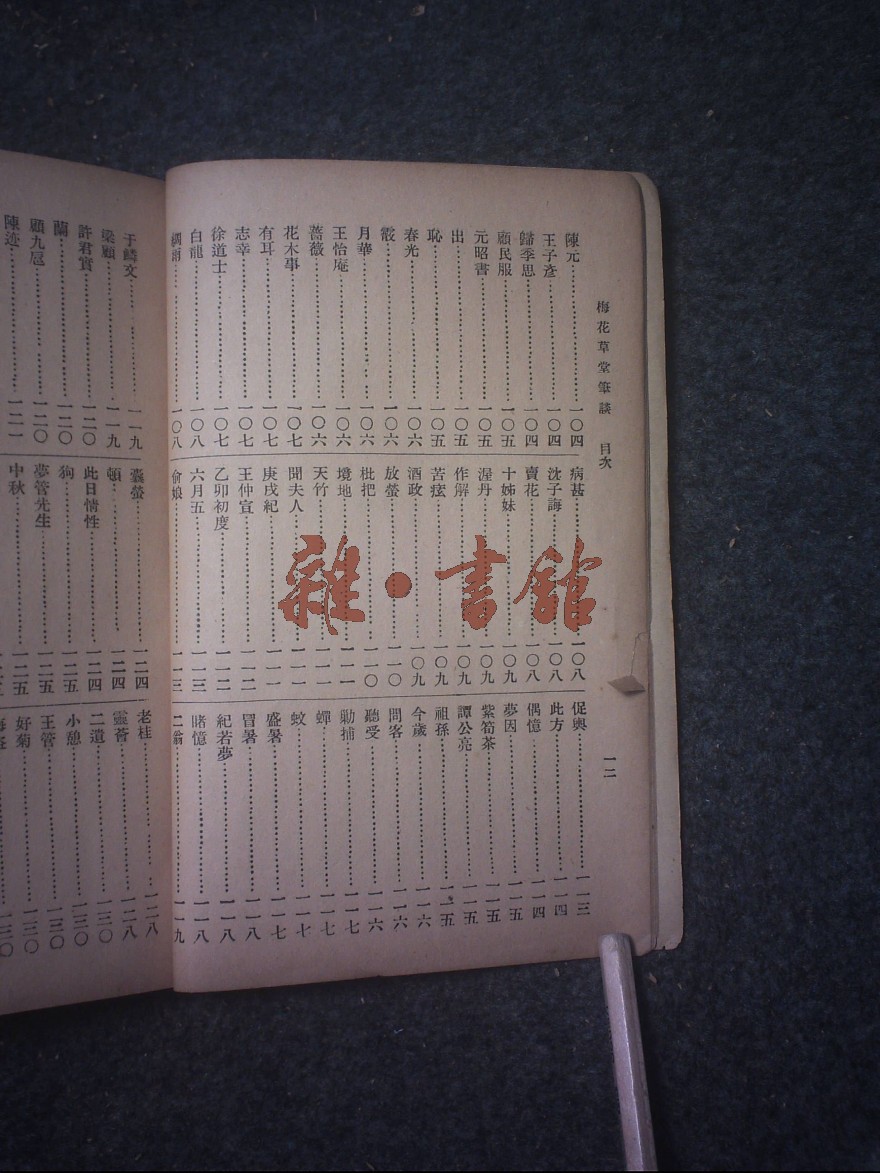 梅花草堂筆談 目次 一二
陳元 一〇四
王子彥 一〇四
歸季思 一〇四
顧民服 一〇五
元昭書 一〇五
出 一〇五
恥 一〇五
春光 一〇六
霰 一〇六
月華 一〇六
王怡庵 一〇六
薔薇 一〇六
花木事 一〇七
有耳 一〇七
志幸 一〇七
徐道士 一〇七
白龍 一〇八
雨 一〇八
病甚 一〇八
沈子誨 一〇八
賣花 一〇八
十姊妹 一〇九
渥丹 一〇九
作解 一〇九
苦痃 一〇九
酒政 一〇九
放螢 一一〇
枇杷 一一〇
境地 一一一
天竹 一一一
聞夫人 一一一
庚戌紀 一一一
王仲宣 一一二
乙卯初度 一一二
六月五 一一三
俞娘 一一三
促輿 一一三
此方 一一四
偶憶 一一四
夢因 一一五
紫筍茶 一一五
譚公亮 一一五
祖孫 一一五
今歲 一一六
問客 一一六
聽受 一一六
勦捕 一一七
蟬 一一七
蚊 一一七
盛暑 一一七
冒暑 一一八
紀若夢 一一八
賭憶 一一八
二 一一九
于鱗文 一一九
梁顧 一一九
許君實 一二〇
蘭 一二〇
顧九 一二〇
陳迹 一二一
囊螢 一二四
頓 一二四
此日情性 一二四
狗 一二五
夢管先生 一二五
中秋
老桂 一二八
靈薈 一二八
二遺 一三〇
小憩 一三〇
王管 一三〇
好菊 一三〇
一三〇
雜·書館